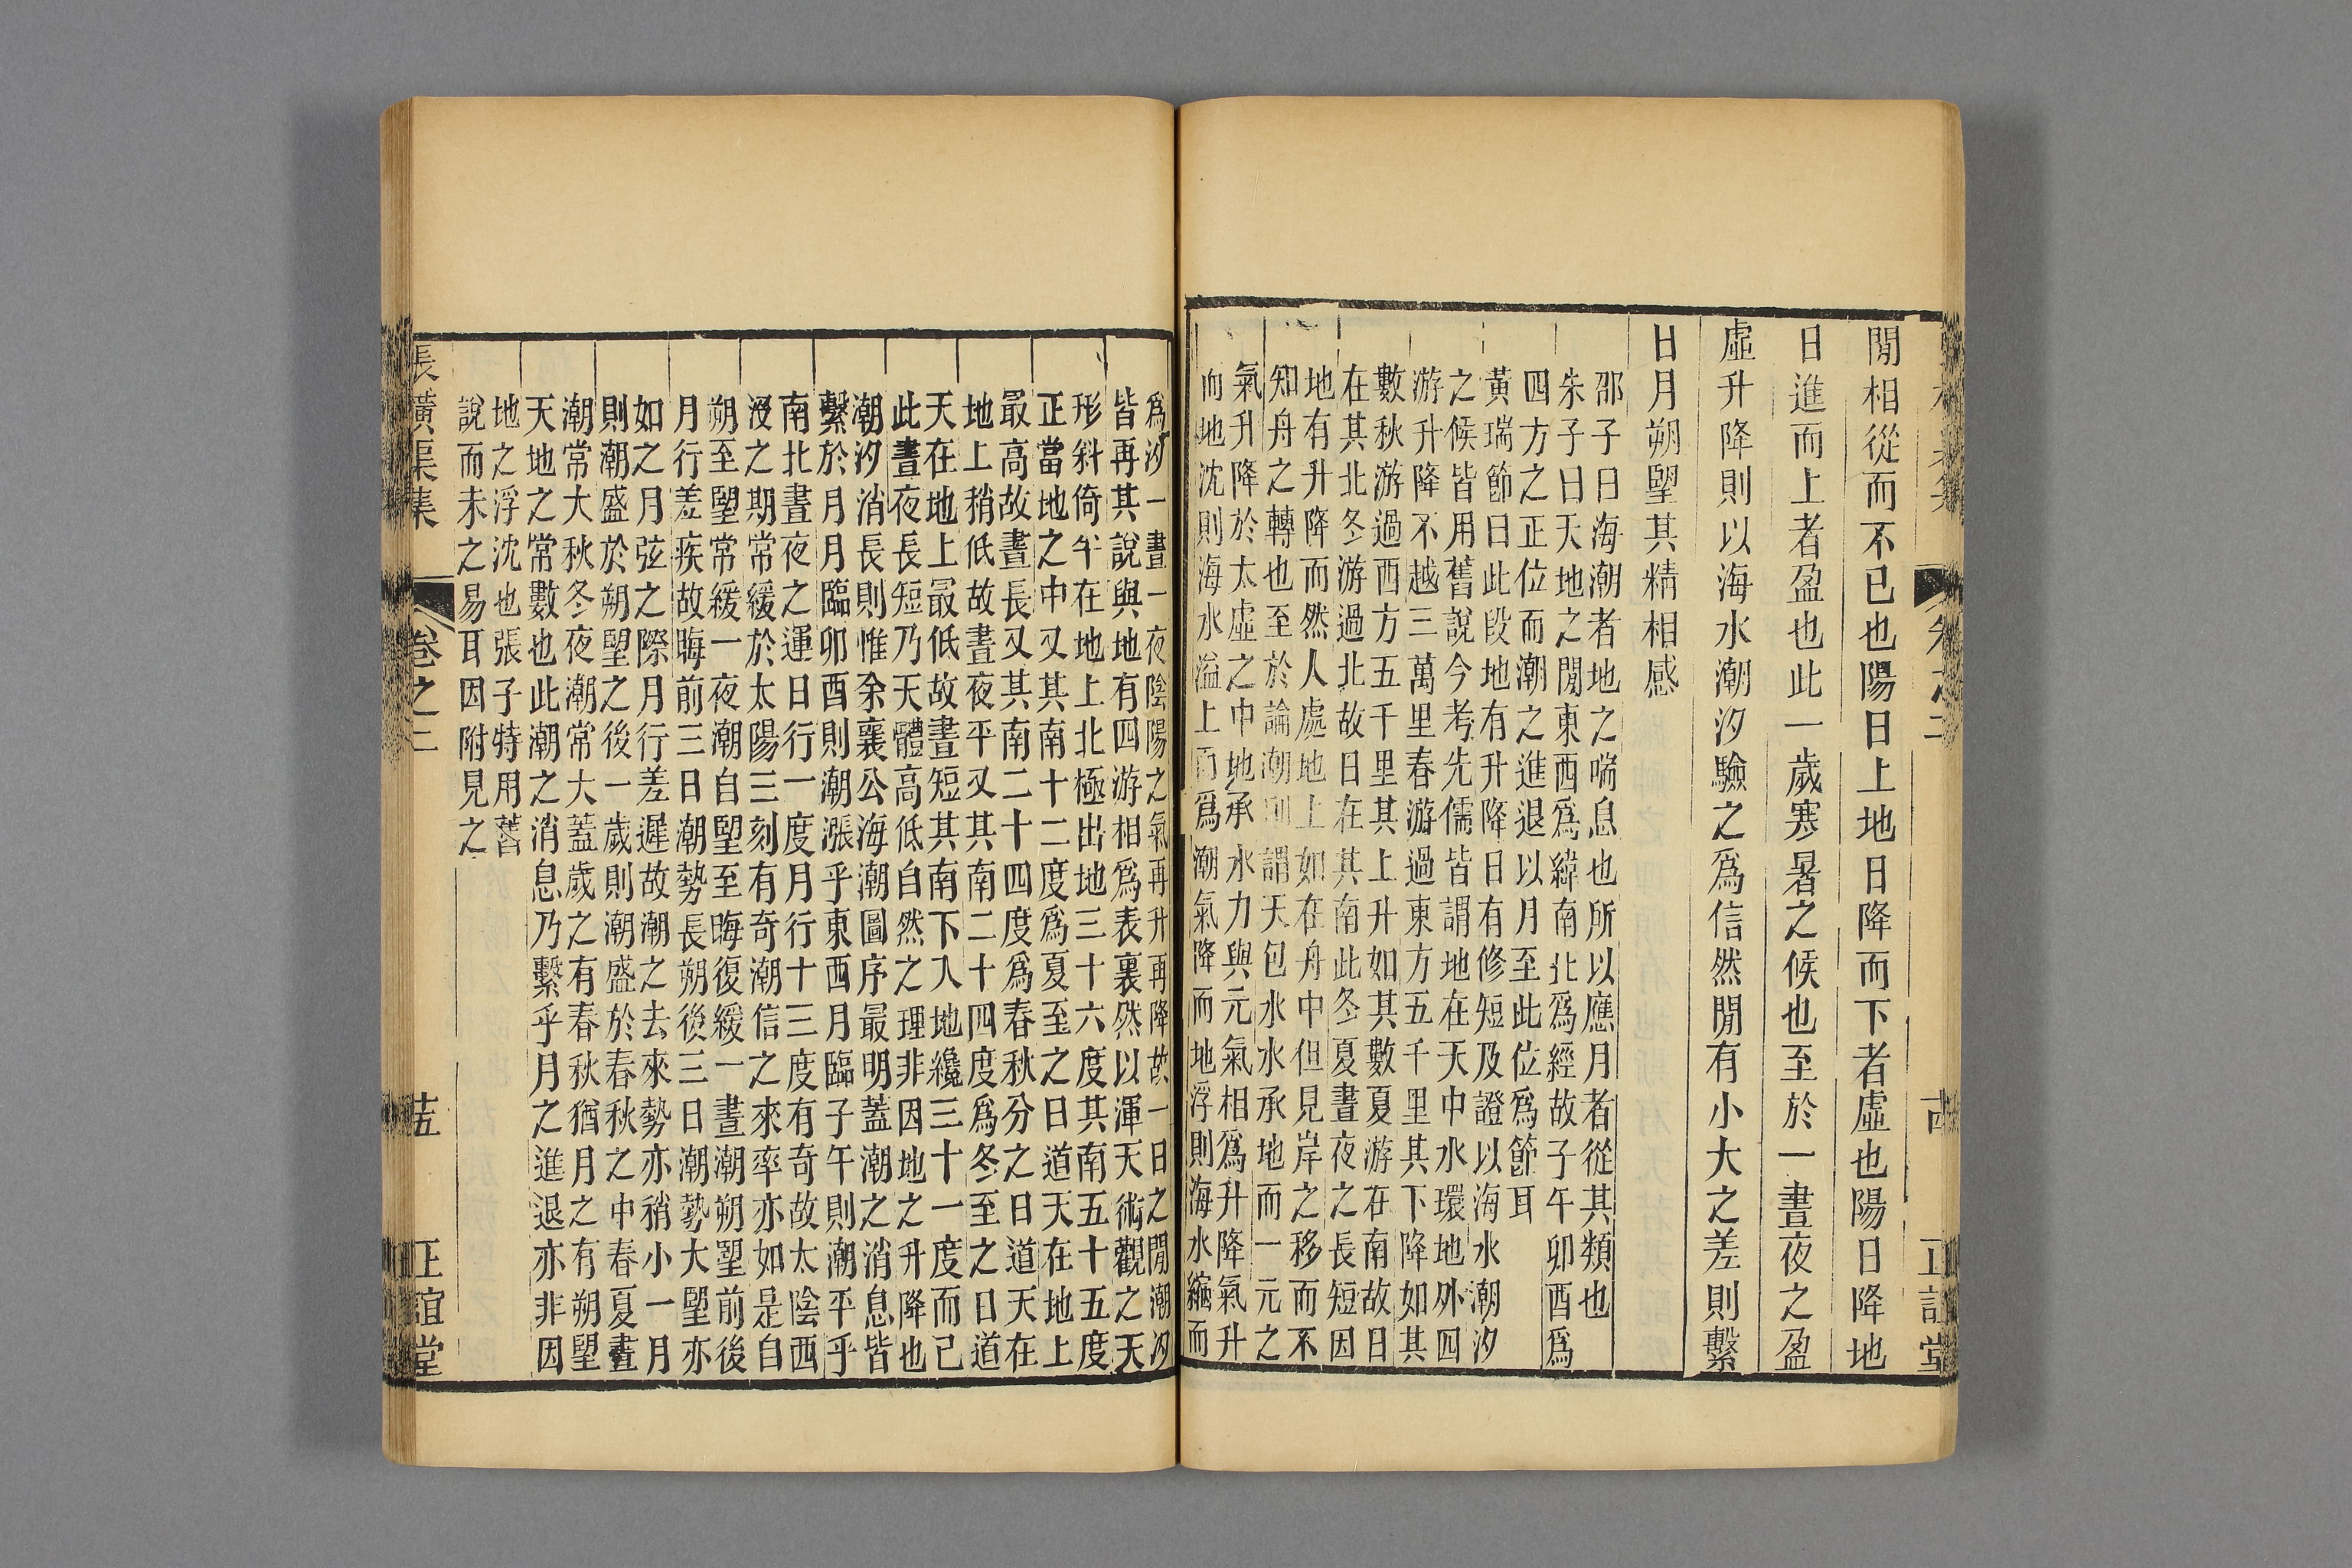 閒相從而不已也陽日上地日降而下者虛也陽日降地
日進而上者盈也此一歲寒暑之候也至於一晝夜之盈
虛升降則以海水潮汐驗之爲信然閒有小大之差則繫
日月朔望其精相感
邵子曰海潮者地之喘息也所以應月者從其類也
朱子曰天地之閒東西爲緯南北爲經故子午卯酉爲
四方之正位而潮之進退以月至此位爲節耳
黃瑞節曰此段地有升降日有修短及證以海水潮汐
之候皆用舊說今考先儒皆謂地在天中水環地外四
游升降不越三萬里春游過東方五千里其下降如其
數秋游過西方五千里其上升如其數夏游在南故日
在其北冬游過北故日在其南此冬夏晝夜之長短因
地有升降而然人處地上如在舟中但見岸之移而不
知舟之轉也至於論潮則謂天包水水承地而一元之
氣升降於太虛之中地承水力與元氣相爲升降氣升
而地沈則海水溢上而爲潮氣降而地浮則海水縮而
爲汐一晝一夜陰陽之氣再升再降故一日之閒潮汐
皆再其說與地有四游相爲表裏然以渾天術觀之天
形斜倚半在地上北極出地三十六度其南五十五度
正當地之中又其南十二度爲夏至之日道天在地上
最高故晝長又其南二十四度爲春秋分之日道天在
地上稍低故晝夜平又其南二十四度爲冬至之日道
天在地上最低故晝短其南下入地纔三十一度而已
此晝夜長短乃天體高低自然之理非因地之升降也
潮汐消長則惟余襄公海潮圖序最明蓋潮之消息皆
繫於月月臨卯酉則潮漲乎東西月臨子午則潮平乎
南北晝夜之運日行一度月行十三度有奇故太陰西
沒之期常緩於太陽三刻有奇潮信之來率亦如是自
朔至望常緩一夜潮自望至晦復緩一晝潮朔望前後
月行差疾故晦前三日潮勢長朔後三日潮勢大望亦
如之月弦之際月行差遲故潮之去來勢亦稍小一月
則潮盛於朔望之後一歲則潮盛於春秋之中春夏晝
潮常大秋冬夜潮常大蓋歲之有春秋猶月之有朔望
天地之常數也此潮之消息乃繫乎月之進退亦非因
地之浮沈也張子特用舊
說而未之易耳因附見之
張橫渠集
卷之二
十五
正誼堂